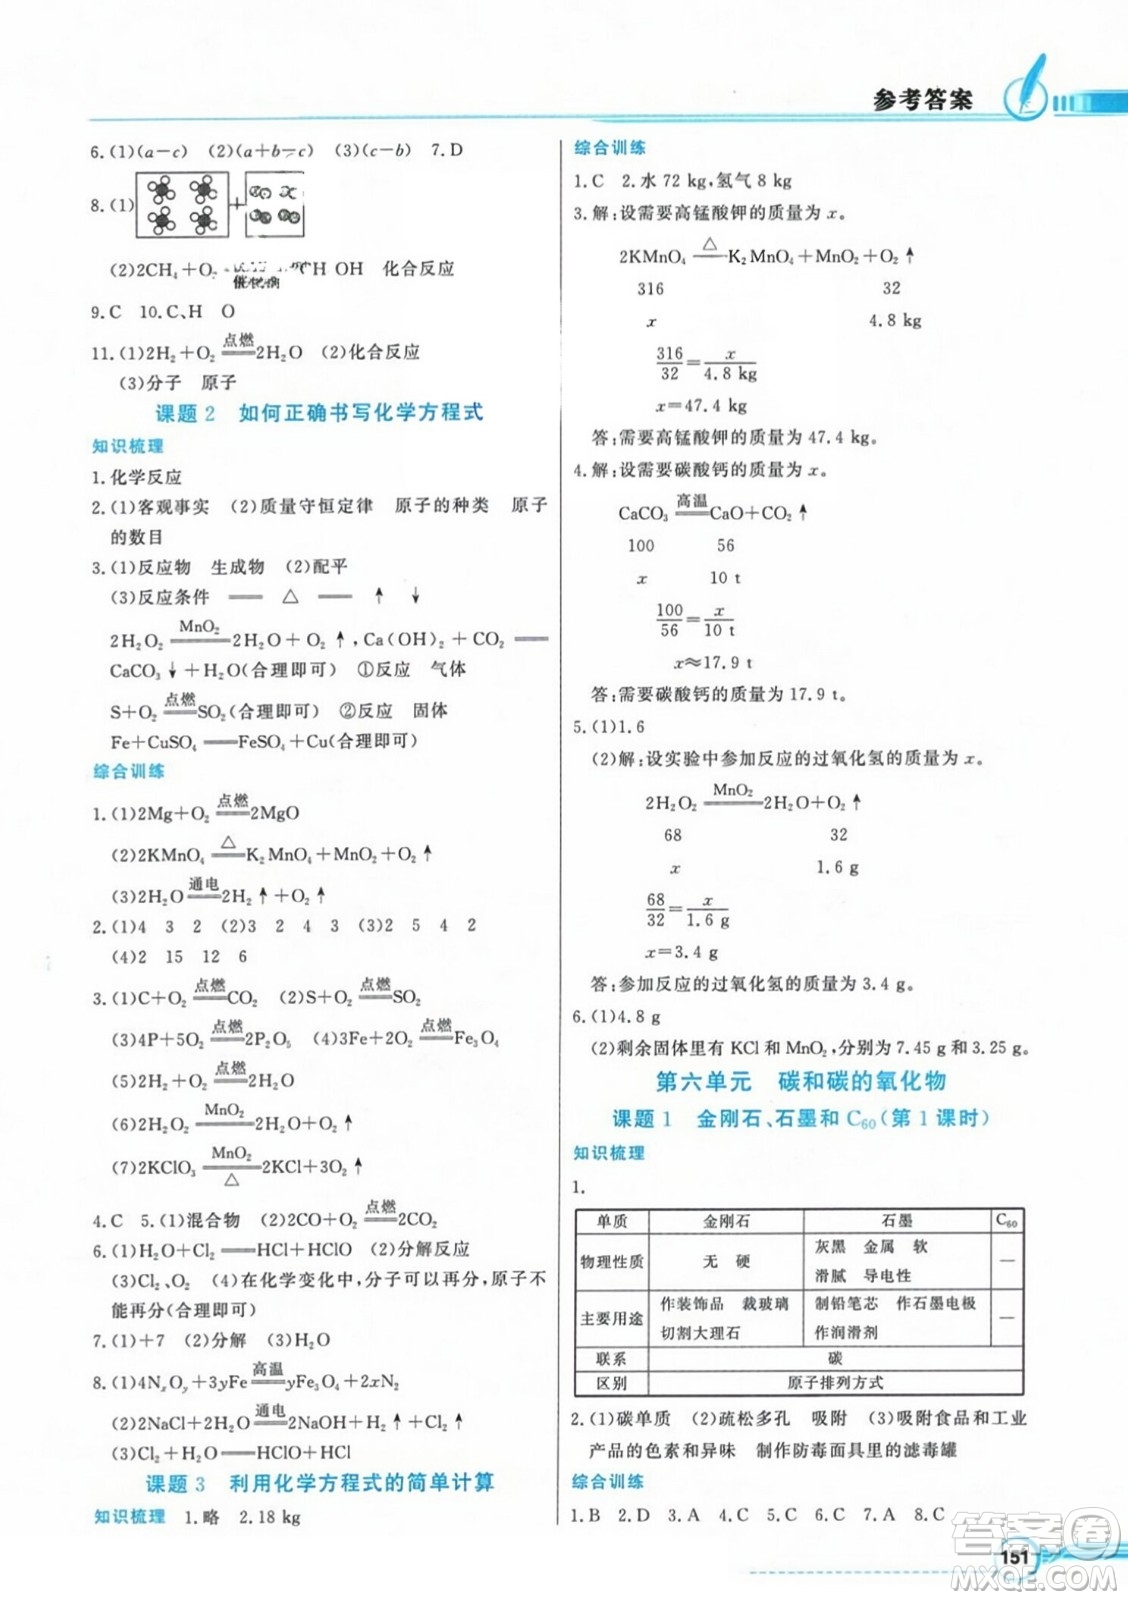 参考答案
6.(1)(a-c) (2)(a+b-c) (3)(c-b) 7.D
8.(1) +
(2)2CH₄+O₂ H OH 化合反应
9.C 10.C、H O
点燃
11.(1)2H₂+O₂══2H₂O (2)化合反应
(3)分子 原子
课题2 如何正确书写化学方程式
知识梳理
1.化学反应
2.(1)客观事实 (2)质量守恒定律 原子的种类 原子
的数目
3.(1)反应物 生成物 (2)配平
(3)反应条件 ══ △ ══ ↑ ↓
MnO₂
2H₂O₂══2H₂O+O₂↑,Ca(OH)₂+CO₂══
CaCO₃↓+H₂O(合理即可) ①反应 气体
点燃
S+O₂══SO₂(合理即可) ②反应 固体
Fe+CuSO₄══FeSO₄+Cu(合理即可)
综合训练
点燃
1.(1)2Mg+O₂══2MgO
△
(2)2KMnO₄══K₂MnO₄+MnO₂+O₂↑
通电
(3)2H₂O══2H₂↑+O₂↑
2.(1)4 3 2 (2)3 2 4 3 (3)2 5 4 2
(4)2 15 12 6
点燃 点燃
3.(1)C+O₂══CO₂ (2)S+O₂══SO₂
点燃 点燃
(3)4P+5O₂══2P₂O₅ (4)3Fe+2O₂══Fe₃O₄
点燃
(5)2H₂+O₂══2H₂O
MnO₂
(6)2H₂O₂══2H₂O+O₂↑
MnO₂
(7)2KClO₃══2KCl+3O₂↑
△
点燃
4.C 5.(1)混合物 (2)2CO+O₂══2CO₂
6.(1)H₂O+Cl₂══HCl+HClO (2)分解反应
(3)Cl₂、O₂ (4)在化学变化中,分子可以再分,原子不
能再分(合理即可)
7.(1)+7 (2)分解 (3)H₂O
高温
8.(1)4NₓOᵧ+3yFe══yFe₃O₄+2xN₂
通电
(2)2NaCl+2H₂O══2NaOH+H₂↑+Cl₂↑
(3)Cl₂+H₂O══HClO+HCl
课题3 利用化学方程式的简单计算
知识梳理 1.略 2.18 kg
综合训练
1.C 2.水 72 kg,氢气 8 kg
3.解:设需要高锰酸钾的质量为 x。
△
2KMnO₄══K₂MnO₄+MnO₂+O₂↑
316 32
x 4.8 kg
316/32=x/4.8 kg
x=47.4 kg
答:需要高锰酸钾的质量为 47.4 kg。
4.解:设需要碳酸钙的质量为 x。
高温
CaCO₃══CaO+CO₂↑
100 56
x 10 t
100/56=x/10 t
x≈17.9 t
答:需要碳酸钙的质量为 17.9 t。
5.(1)1.6
(2)解:设实验中参加反应的过氧化氢的质量为 x。
MnO₂
2H₂O₂══2H₂O+O₂↑
68 32
x 1.6 g
68/32=x/1.6 g
x=3.4 g
答:参加反应的过氧化氢的质量为 3.4 g。
6.(1)4.8 g
(2)剩余固体里有 KCl 和 MnO₂,分别为 7.45 g 和 3.25 g。
第六单元 碳和碳的氧化物
课题1 金刚石、石墨和 C₆₀(第1课时)
知识梳理
1.
单质 金刚石 石墨 C₆₀
物理性质 无 硬 灰黑 金属 软 —
滑腻 导电性
主要用途 作装饰品 裁玻璃 制铅笔芯 作石墨电极 —
切割大理石 作润滑剂
联系 碳
区别 原子排列方式
2.(1)碳单质 (2)疏松多孔 吸附 (3)吸附食品和工业
产品的色素和异味 制作防毒面具里的滤毒罐
综合训练
1.B 2.D 3.A 4.D 5.C 6.C 7.A 8.C
151
答案圈
MXQE.COM